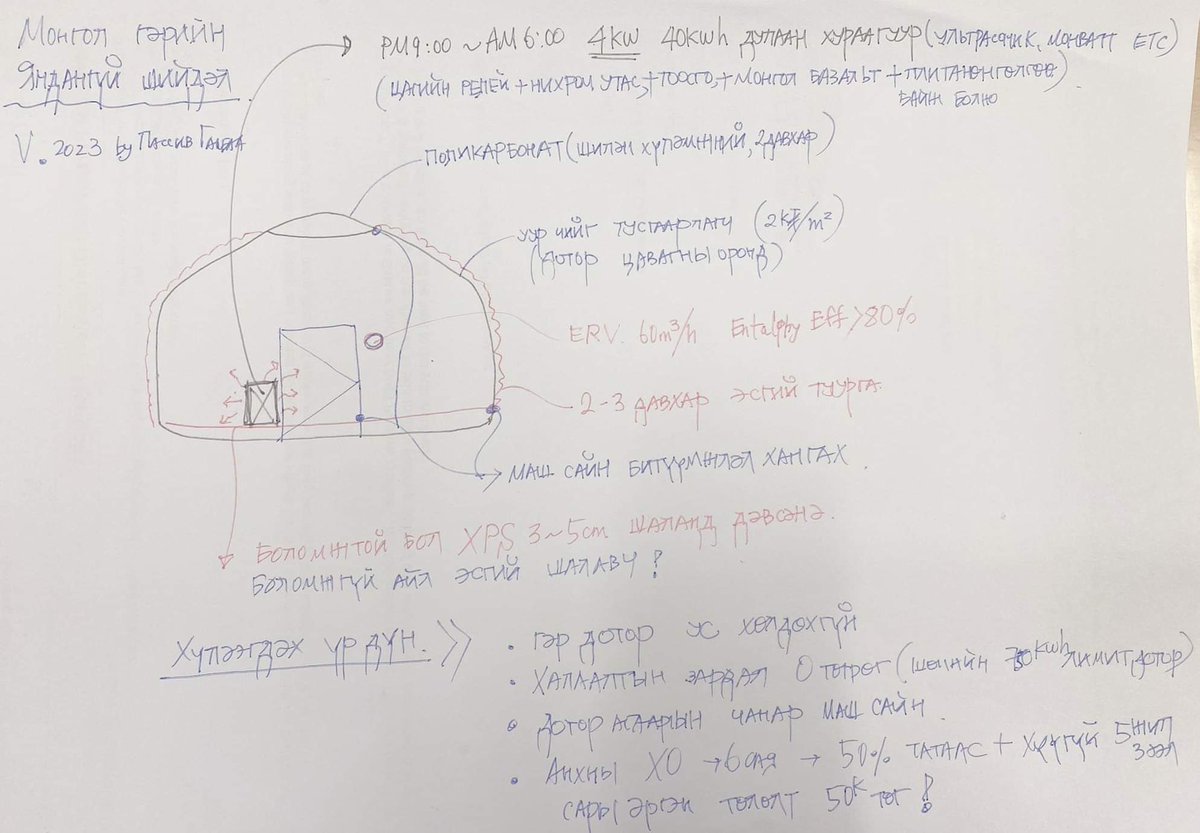 Монгол гэрийн
Яндангүй шийдэл
V. 2023 by Пассив
PM9:00 ~ AM 6:00 4KW 40KWh ДУЛААН ХУРААГУУР (УЛЬТРАСОНИК, МОНВАТТ ETC)
(ЦАГИЙН РЕЛЕЙ + НИХРОМ УТАС, + ТООСГО, + МОНГОЛ БАЗАЛЬТ + ПЛИТА
БАЙЖ БОЛНО
ПОЛИКАРБОНАТ (ШИЛЭН ХҮЛЭМЖНИЙ, 2 ДАВХАР)
УУР ЧИЙГ ТУСГААРЛАГЧ (2K₮/m²)
(ДОТОР ЦАВАГНЫ ОРОНД)
ERV. 60m³/h Entalphy Eff > 80%
2-3 ДАВХАР ЭСГИЙ ТУУРГА
МАШ САЙН БИТҮҮМЖЛЭЛ ХАНГАХ.
БОЛОМЖТОЙ БОЛ XPS 3~5cm ШАЛАНД ДЭВСЭНЭ.
БОЛОМЖГҮЙ АЙЛ ЭСГИЙ ШАЛАВЧ!
ХҮЛЭЭГДЭХ ҮР ДҮН. >>
• ГЭР ДОТОР УС ХӨЛДӨХГҮЙ
• ХАЛААЛТЫН ЗАРДАЛ 0 ТӨГРӨГ (ШӨНИЙН KWh ЛИМИТ ДОТОР)
• ДОТОР АГААРЫН ЧАНАР МАШ САЙН.
• АНХНЫ ХО → 6 САЯ → 50% ТАТААС + ХҮҮГҮЙ 5 ЖИЛ ЗЭЭЛ
САРЫ ЭРГЭН ТӨЛӨЛТ 50K ТӨГ!